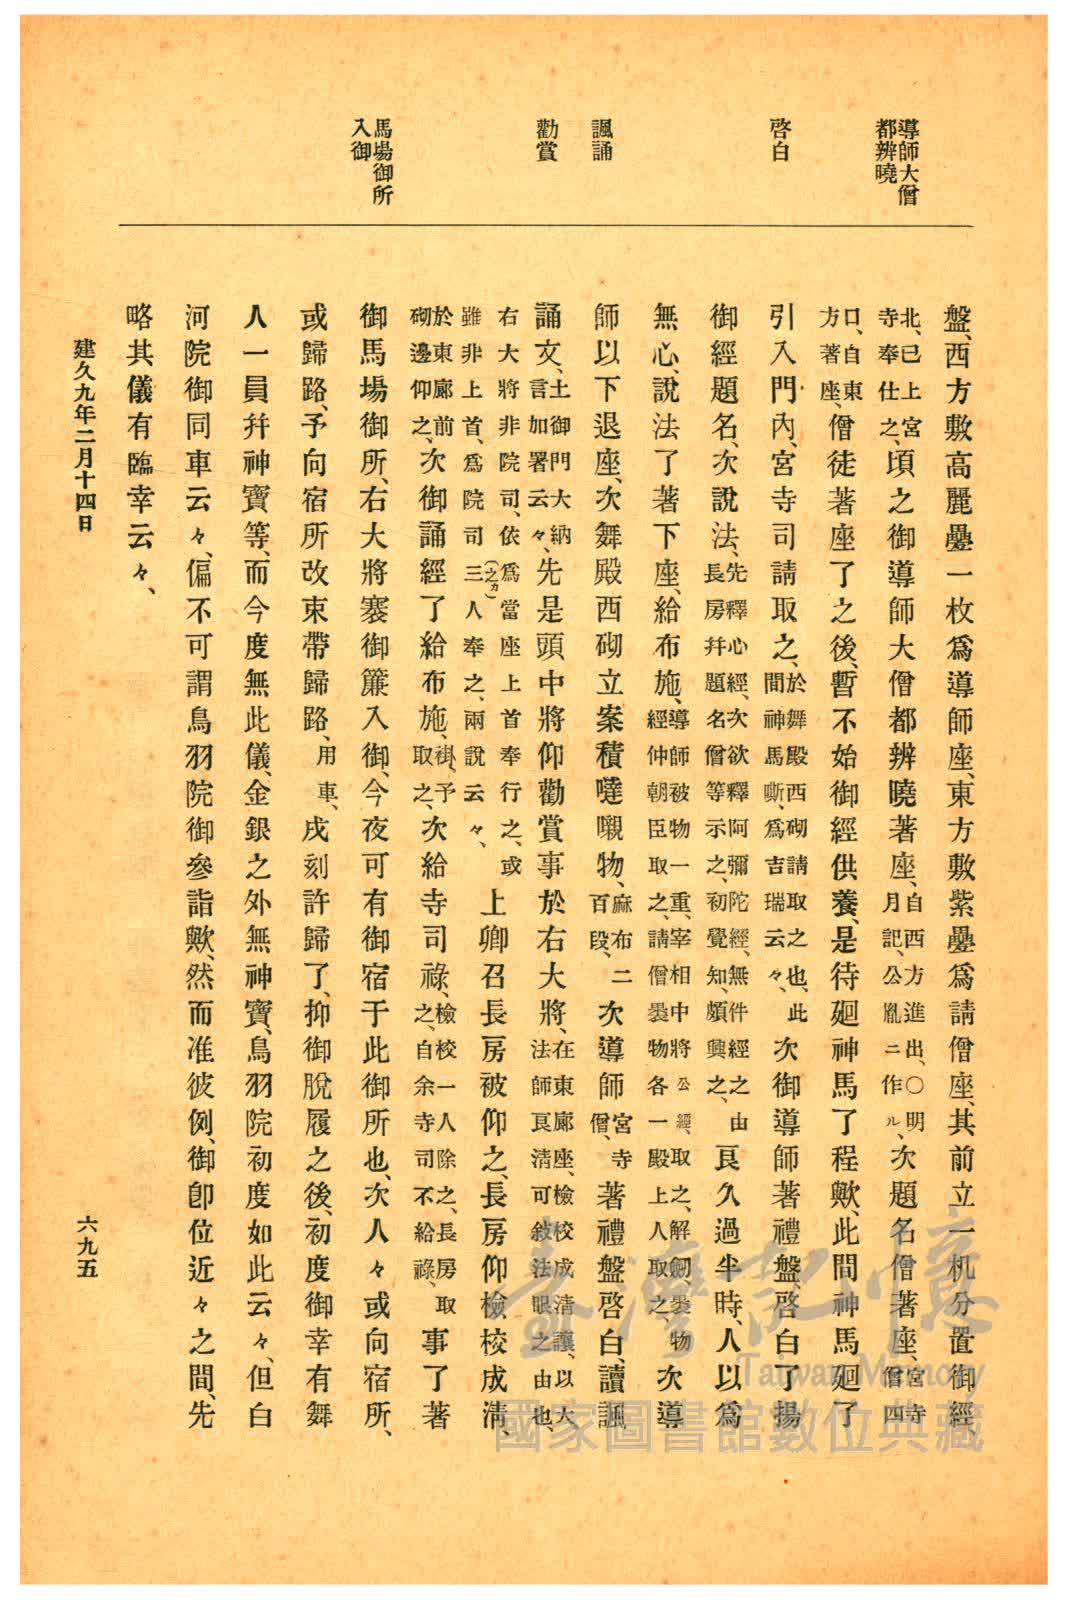 導師大僧
都辨曉
啓白
諷誦
勸賞
馬場御所
入御
盤、西方敷高麗疊一枚爲導師座、東方敷紫疊爲請僧座、其前立一机分置御經、
北、已上宮寺奉仕之、頃之御導師大僧都辨曉著座、自西方進出、〇明月記、公胤ニ作ル、次題名僧著座、宮寺僧四
口、自東方著座、僧徒著座了之後、暫不始御經供養、是待廻神馬了程歟、此間神馬廻了
引入門內、宮寺司請取之、於舞殿西砌請取之也、此間神馬嘶、爲吉瑞云々、次御導師著禮盤、啓白了揚
御經題名、次說法、先釋心經、次欲釋阿彌陀經、無件經之由長房幷題名僧等示之、初覺知、頗興之、良久過半時、人以爲
無心、說法了著下座、給布施、導師被物一重、宰相中將公經、取之、解劒、裹物經仲朝臣取之、請僧裹物各一殿上人取之、次導
師以下退座、次舞殿西砌立案積噠嚫物、麻布二百段、次導師宮寺僧、著禮盤啓白、讀諷
誦文、土御門大納言加署云々、先是頭中將仰勸賞事於右大將、在東廊座、檢校成清讓、以大法師良清可敍法眼之由也、
右大將非院司、依(之カ)爲當座上首奉行之、或雖非上首、爲院司三人奉之、兩說云々、上卿召長房被仰之、長房仰檢校成淸、
於東廊前砌邊仰之、次御誦經了給布施、褂、予取之、次給寺司祿、檢校一人除之、長房取之、自余寺司不給祿、事了著
御馬場御所、右大將褰御簾入御、今夜可有御宿于此御所也、次人々或向宿所、
或歸路、予向宿所改束帶歸路、用車、戌刻許歸了、抑御脫履之後、初度御幸有舞
人一員幷神寶等、而今度無此儀、金銀之外無神寶、鳥羽院初度如此云々、但白
河院御同車云々、偏不可謂鳥羽院御參詣歟、然而准彼例、御卽位近々之間、先
略其儀有臨幸云々、
建久九年二月十四日
六九五
臺灣記憶
Taiwan Memory
國家圖書館數位典藏